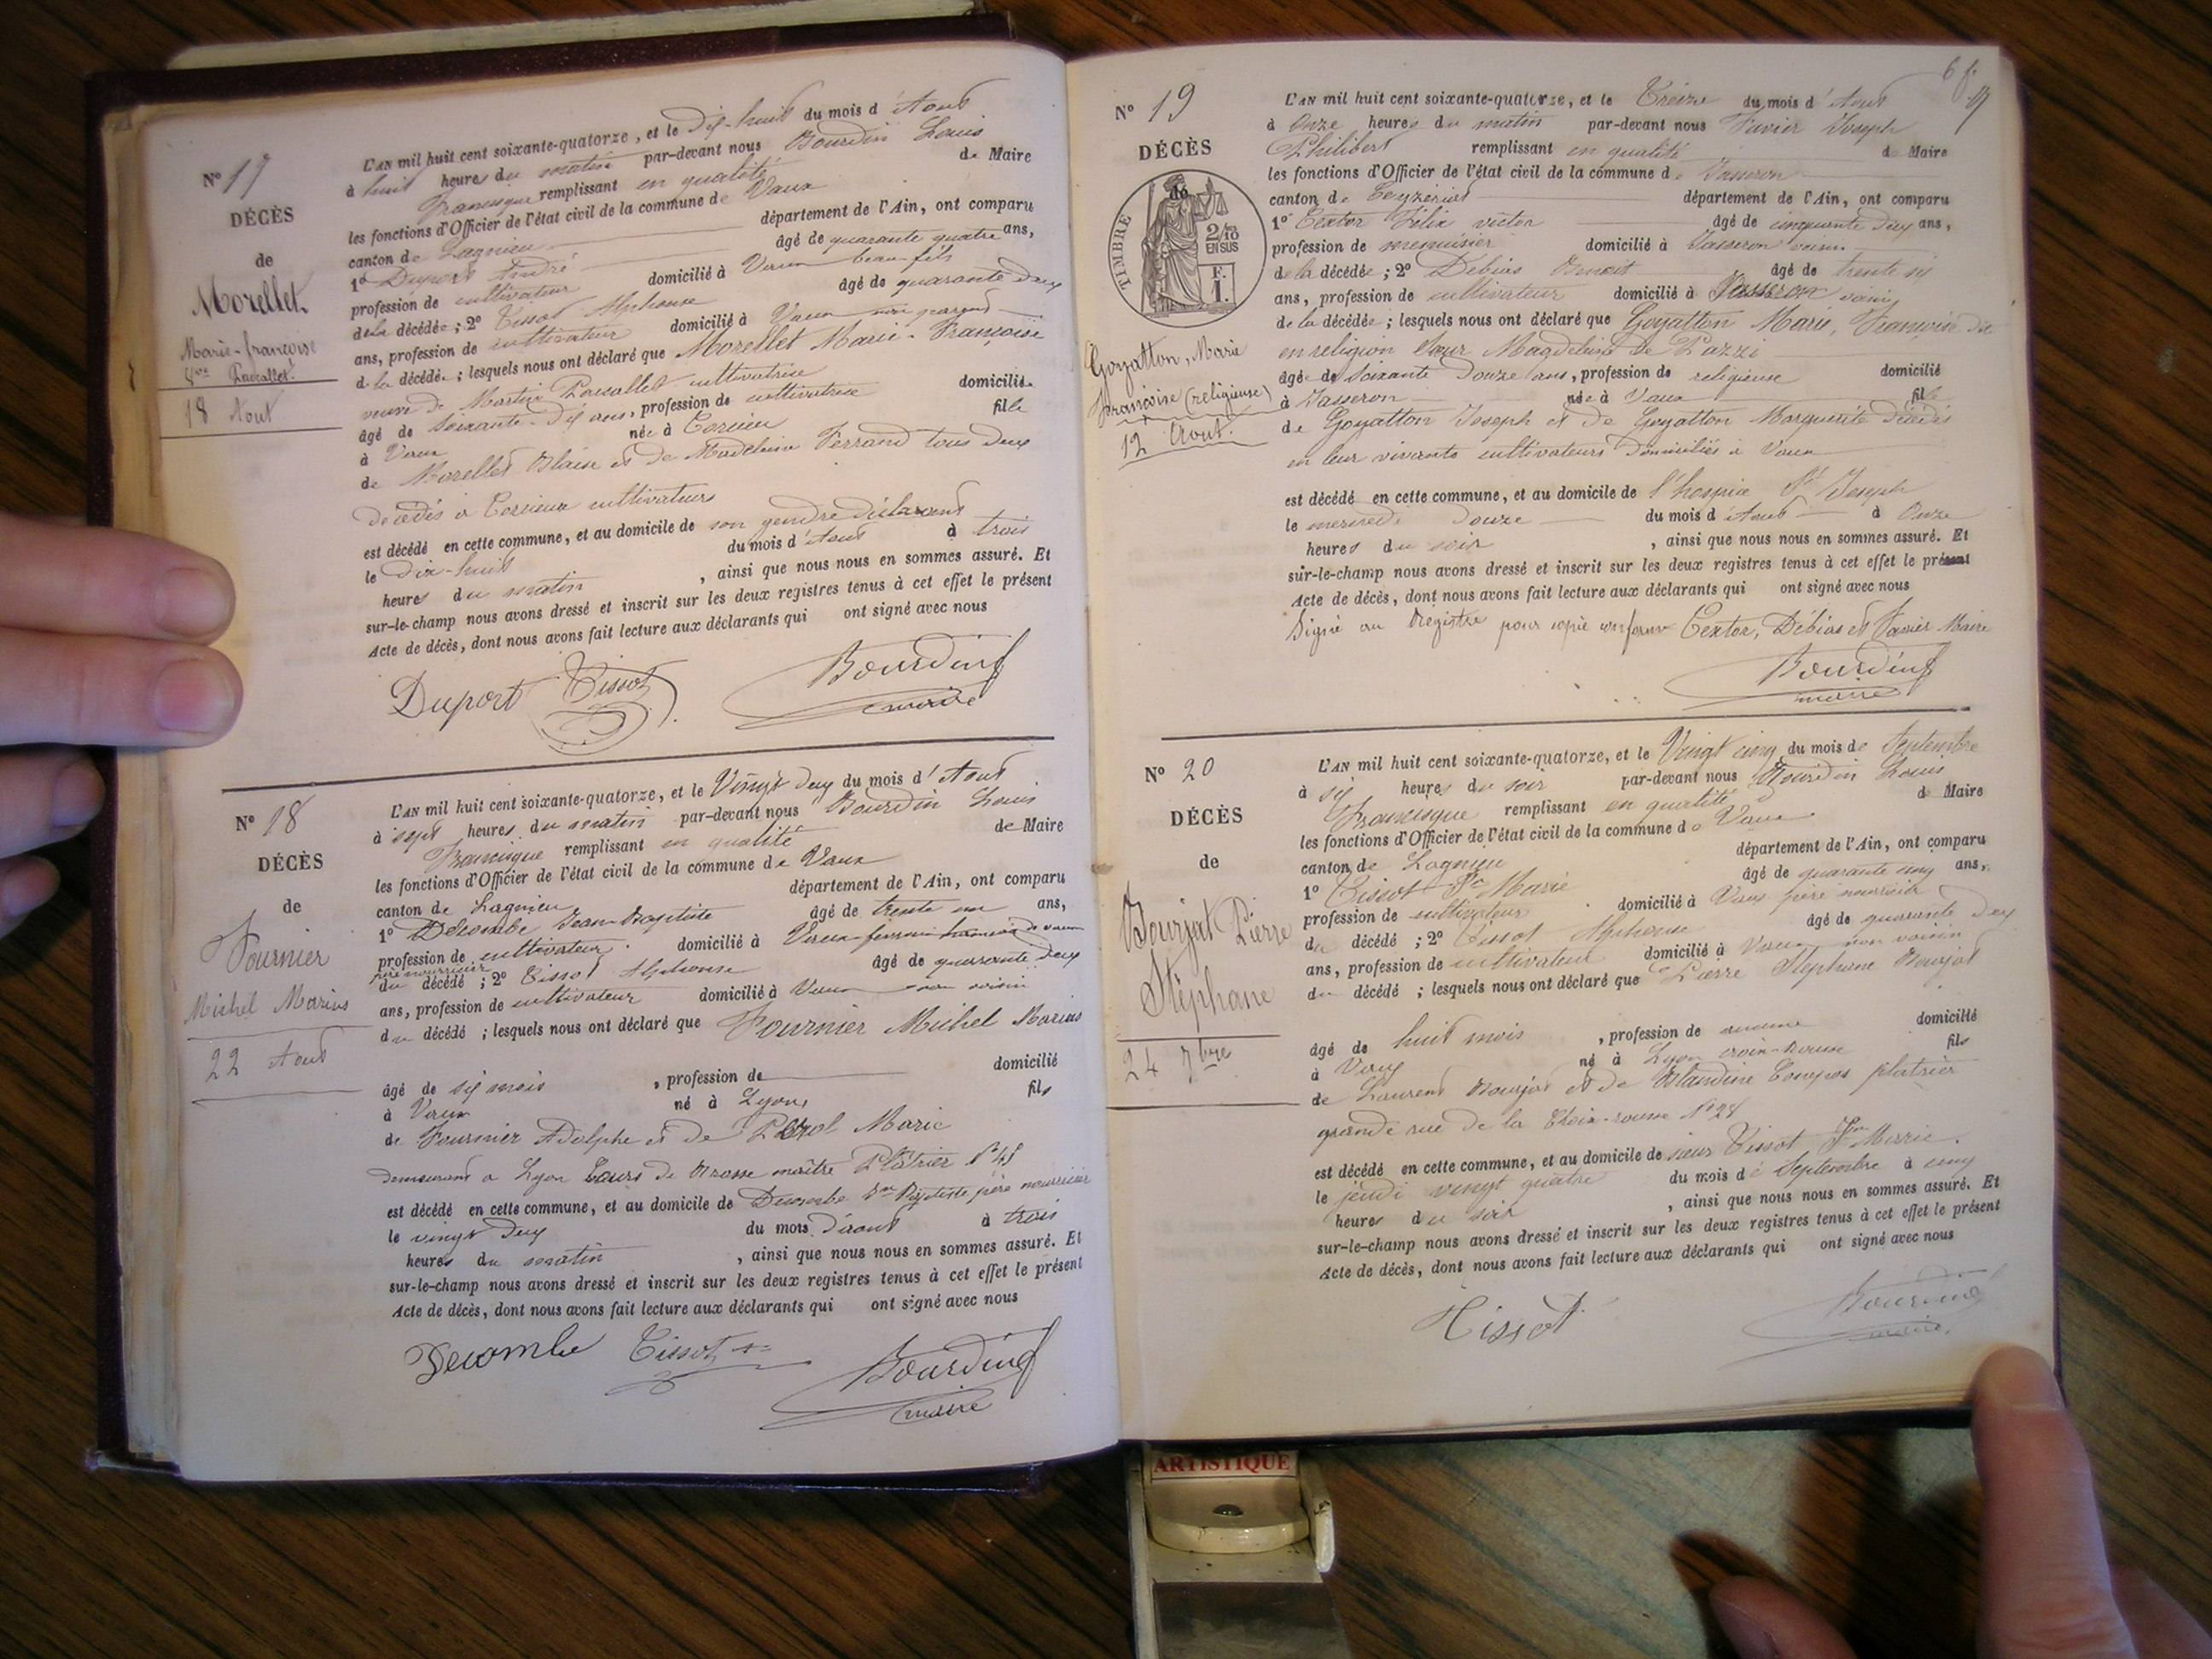 N° 17
DÉCÈS
de
Morellet
Marie-françoise
18 Aout
L'AN mil huit cent soixante-quatorze, et le Dix-huit du mois d'Aout
à huit heures du matin par-devant nous Bourdin Louis
Francisque remplissant en qualité de Maire
les fonctions d'Officier de l'état civil de la commune de Vaux
canton de Lagnieu département de l'Ain, ont comparu
1° Duport André âgé de quarante quatre ans,
profession de cultivateur domicilié à Vaux beau-fils
de la décédée; 2° Tissot Alphonse âgé de quarante deux
ans, profession de cultivateur domicilié à Vaux non parent
de la décédée; lesquels nous ont déclaré que Morellet Marie-Françoise
veuve de Martin cultivatrice
âgé de soixante-dix ans, profession de cultivatrice domicilié
à Vaux née à Torcieu fille
de Morellet Blaise et de Madeleine Ferrand tous deux
décédés à Torcieu cultivateurs
est décédé en cette commune, et au domicile de son gendre déclarant
le dix-huit du mois d'Aout à trois
heures du matin, ainsi que nous nous en sommes assuré. Et
sur-le-champ nous avons dressé et inscrit sur les deux registres tenus à cet effet le présent
Acte de décès, dont nous avons fait lecture aux déclarants qui ont signé avec nous
Duport Tissot Bourdin
maire
N° 18
DÉCÈS
de
Fournier
Michel Marius
22 Aout
L'AN mil huit cent soixante-quatorze, et le Vingt deux du mois d'Aout
à sept heures du matin par-devant nous Bourdin Louis
Francisque remplissant en qualité de Maire
les fonctions d'Officier de l'état civil de la commune de Vaux
canton de Lagnieu département de l'Ain, ont comparu
1° Decombe Jean-Baptiste âgé de trente un ans,
profession de cultivateur domicilié à Vaux
père nourricier
du décédé; 2° Tissot Alphonse âgé de quarante deux
ans, profession de cultivateur domicilié à Vaux non voisin
du décédé; lesquels nous ont déclaré que Fournier Michel Marius
âgé de six mois, profession de domicilié
à Vaux né à Lyon fils
de Fournier Adolphe et de Marie
demeurant à Lyon Cours de Brosse maître Plâtrier N° 45
est décédé en cette commune, et au domicile de Decombe Jean Baptiste père nourricier
le vingt deux du mois d'aout à trois
heures du matin, ainsi que nous nous en sommes assuré. Et
sur-le-champ nous avons dressé et inscrit sur les deux registres tenus à cet effet le présent
Acte de décès, dont nous avons fait lecture aux déclarants qui ont signé avec nous
Decombe Tissot Bourdin
maire
N° 19
DÉCÈS
TIMBRE
2/10
EN SUS
F.
1.
Goyatton, Marie
Françoise (religieuse)
12 Aout.
L'AN mil huit cent soixante-quatorze, et le Treize du mois d'Aout
à Onze heures du matin par-devant nous Favier Joseph
Philibert remplissant en qualité de Maire
les fonctions d'Officier de l'état civil de la commune de Jasseron
canton de Ceyzériat département de l'Ain, ont comparu
1° Textor Félix victor âgé de cinquante deux ans,
profession de menuisier domicilié à Jasseron voisin
de la décédée; 2° Débias Benoit âgé de trente six
ans, profession de cultivateur domicilié à Jasseron voisin
de la décédée; lesquels nous ont déclaré que Goyatton Marie, Françoise dite
en religion Soeur Magdeleine de Pazzi
âgée de soixante Douze ans, profession de religieuse domicilié
à Jasseron née à Vaux fille
de Goyatton Joseph et de Goyatton Marguerite décédés
en leur vivants cultivateurs Domiciliés à Vaux
est décédé en cette commune, et au domicile de l'hospice St Joseph
le mercredi Douze du mois d'Aout à Onze
heures du soir, ainsi que nous nous en sommes assuré. Et
sur-le-champ nous avons dressé et inscrit sur les deux registres tenus à cet effet le présent
Acte de décès, dont nous avons fait lecture aux déclarants qui ont signé avec nous
Signé au Registre pour copie conforme Textor, Débias et Favier Maire
Bourdin
maire
N° 20
DÉCÈS
de
Bourjat Pierre
Stéphane
24 7bre
L'AN mil huit cent soixante-quatorze, et le Vingt cinq du mois de Septembre
à six heures du soir par-devant nous Bourdin Louis
Francisque remplissant en qualité de Maire
les fonctions d'Officier de l'état civil de la commune de Vaux
canton de Lagnieu département de l'Ain, ont comparu
1° Tissot Jn Marie âgé de quarante cinq ans,
profession de cultivateur domicilié à Vaux père nourricier
du décédé; 2° Tissot Alphonse âgé de quarante deux
ans, profession de cultivateur domicilié à Vaux non voisin
du décédé; lesquels nous ont déclaré que Pierre Stéphane Bourjat
âgé de huit mois, profession de aucune domicilié
à Vaux né à Lyon croix-Rousse fils
de Laurent Bourjat et de Blandine plâtrier
grande rue de la Croix-rousse N° 28
est décédé en cette commune, et au domicile de sieur Tissot Jean Marie.
le jeudi vingt quatre du mois de Septembre à cinq
heures du soir, ainsi que nous nous en sommes assuré. Et
sur-le-champ nous avons dressé et inscrit sur les deux registres tenus à cet effet le présent
Acte de décès, dont nous avons fait lecture aux déclarants qui ont signé avec nous
Tissot Bourdin
maire
ARTISTIQUE